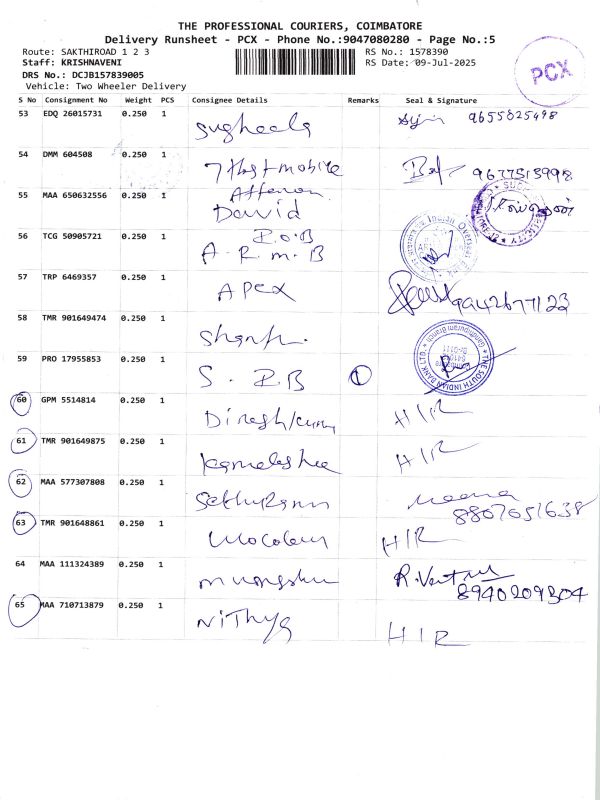 THE PROFESSIONAL COURIERS, COIMBATORE
Delivery Runsheet - PCX - Phone No.:9047080280 - Page No.:5
Route: SAKTHIROAD 1 2 3
RS No.: 1578390
Staff: KRISHNAVENI
RS Date: 09-Jul-2025
DRS No.: DCJB157839005
Vehicle: Two Wheeler Delivery
PCX
S No Consignment No Weight PCS Consignee Details Remarks Seal & Signature
53 EDQ 26015731 0.250 1 sugheela 9655825498
54 DMM 604508 0.250 1 9677515998
55 MAA 650632556 0.250 1 David
56 TCG 50905721 0.250 1 A.R.M.B
57 TRP 6469357 0.250 1 APEX 9942677123
58 TMR 901649474 0.250 1
59 PRO 17955853 0.250 1 1
THE SOUTH INDIAN BANK LTD.
Gandhipuram Branch
60 GPM 5514814 0.250 1 HIR
61 TMR 901649875 0.250 1 HIR
62 MAA 577307808 0.250 1 meena
8807651638
63 TMR 901648861 0.250 1 HIR
64 MAA 111324389 0.250 1
8940209304
65 MAA 710713879 0.250 1 NiThya HIR